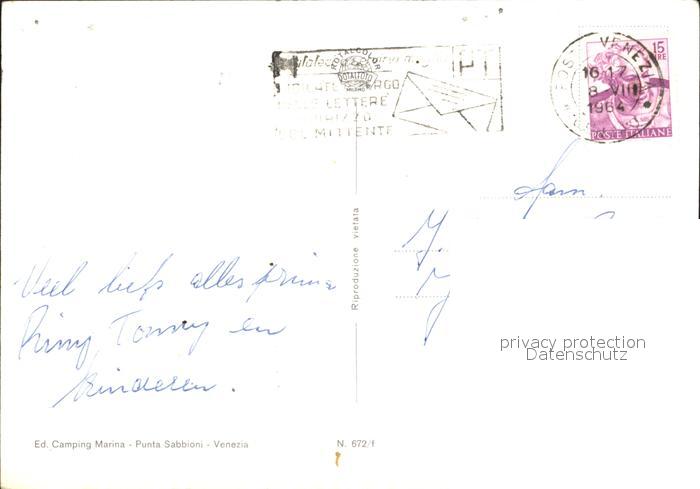 POSTALCOLOR
TOTALFOTO
MILANO
LETTERE
MITTENTE
VENEZIA
16-17
8 VIII
1964
15
LIRE
POSTE ITALIANE
Fam.
Riproduzione vietata
Veel liefs alles prima
Riny, Tonny en
kinderen.
privacy protection
Datenschutz
Ed. Camping Marina - Punta Sabbioni - Venezia
N. 672/f